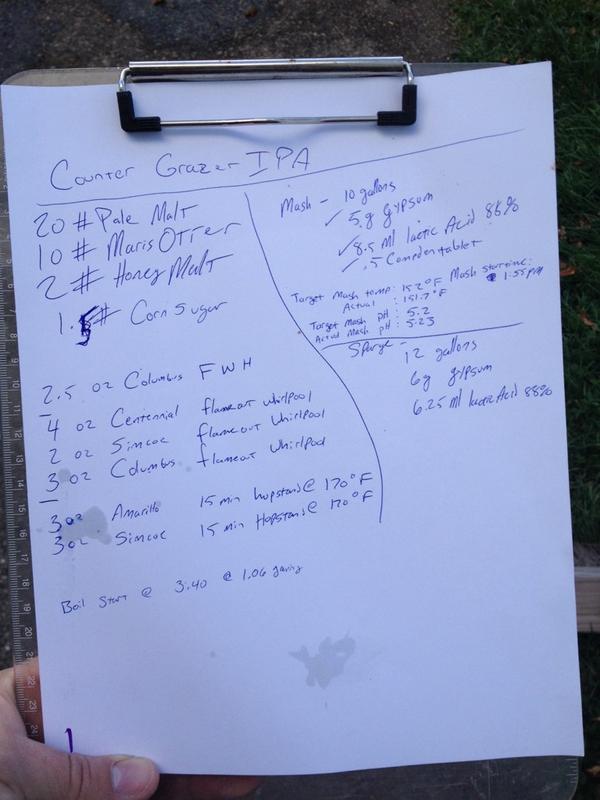 Counter Grazer IPA
20 # Pale Malt
10 # Maris Otter
2 # Honey Malt
1.5 # Corn Sugar
2.5 oz Columbus FWH
4 oz Centennial flameout whirlpool
2 oz Simcoe flameout whirlpool
3 oz Columbus flameout whirlpool
3 oz Amarillo 15 min hopstand @ 170°F
3 oz Simcoe 15 min Hopstand @ 170°F
Boil Start @ 3:40 @ 1.06
Mash - 10 gallons
✓ 5g gypsum
✓ 8.5 ml lactic Acid 88%
✓ .5 Campden tablet
Target Mash temp: 152°F Mash start time:
Actual : 151.7°F @ 1:55pm
Target Mash pH : 5.2
Actual Mash pH : 5.23
Sparge - 12 gallons
6g gypsum
6.25 ml lactic Acid 88%
1